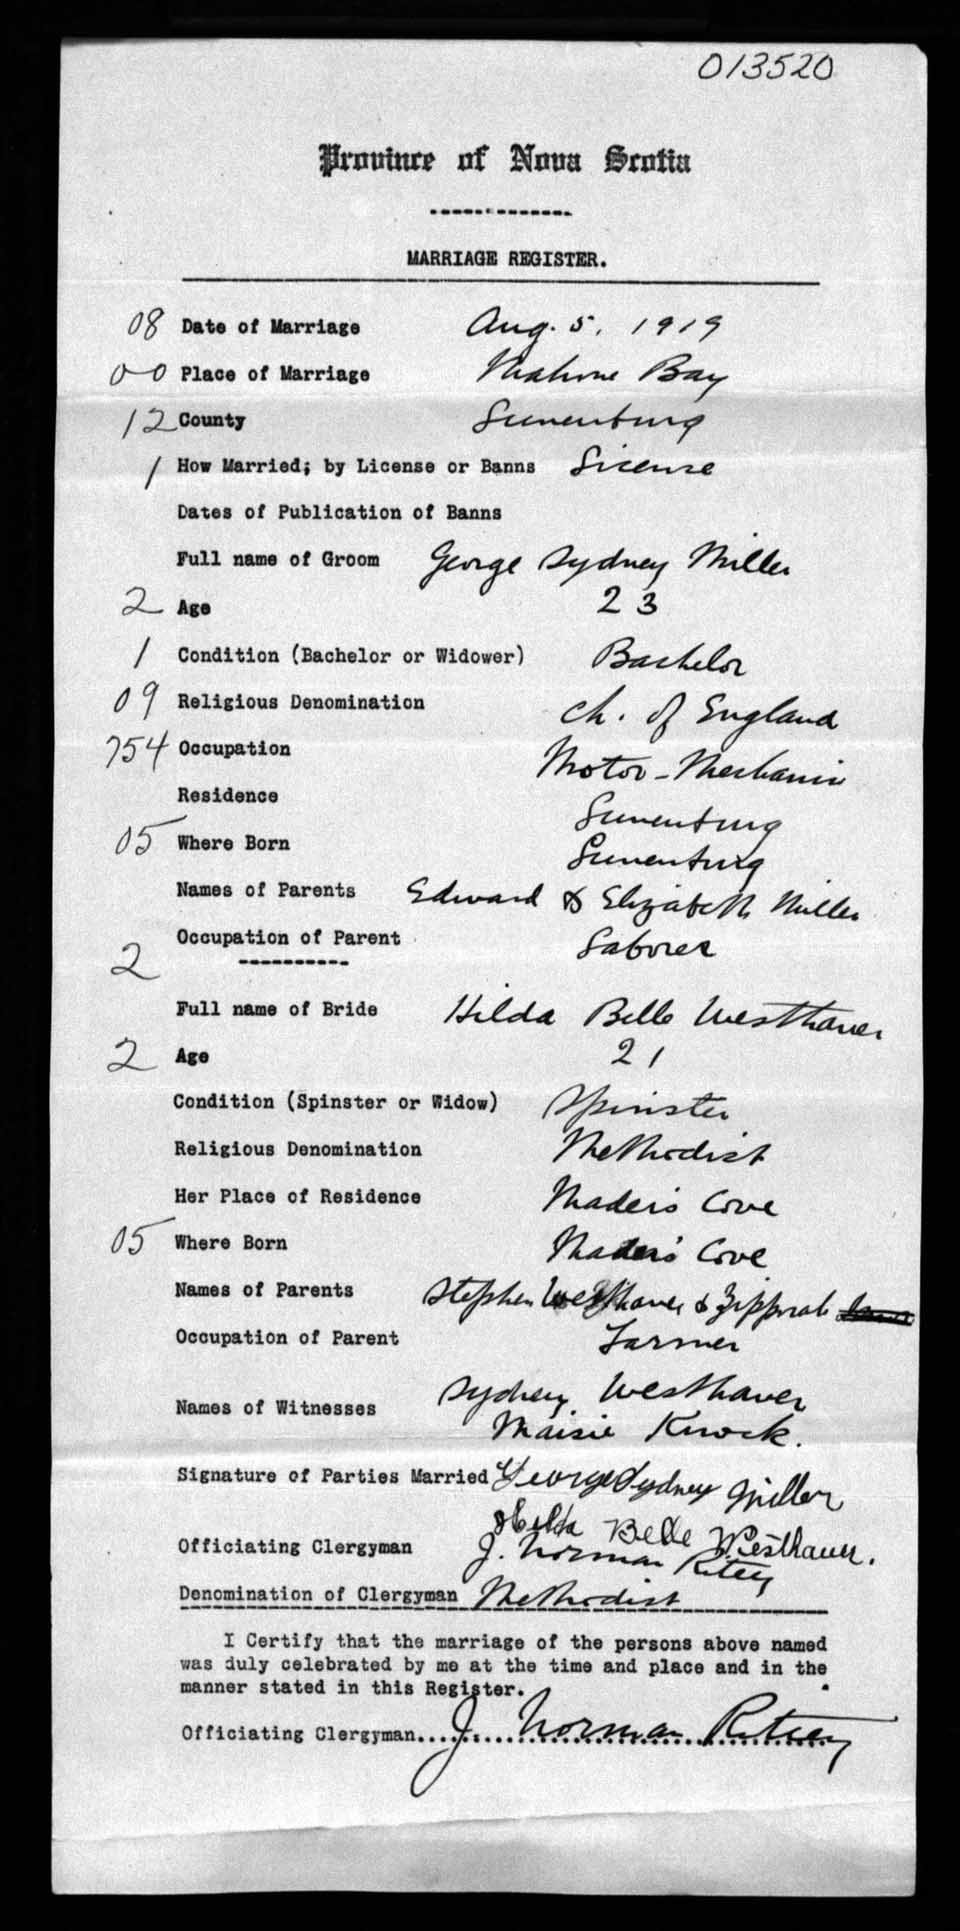 013520
Province of Nova Scotia
MARRIAGE REGISTER.
08 Date of Marriage Aug. 5, 1919
00 Place of Marriage Mahone Bay
12 County Lunenburg
1 How Married; by License or Banns License
Dates of Publication of Banns
Full name of Groom George Sydney Miller
2 Age 23
1 Condition (Bachelor or Widower) Bachelor
09 Religious Denomination Ch. of England
754 Occupation Motor-Mechanic
Residence Lunenburg
05 Where Born Lunenburg
Names of Parents Edward & Elizabeth Miller
Occupation of Parent Laborer
2
Full name of Bride Hilda Belle Westhaver
2 Age 21
Condition (Spinster or Widow) Spinster
Religious Denomination Methodist
Her Place of Residence Mader's Cove
05 Where Born Mader's Cove
Names of Parents Stephen Westhaver & Zipporah
Occupation of Parent Farmer
Names of Witnesses Sydney Westhaver
Maisie Knock.
Signature of Parties Married George Sydney Miller
Hilda Belle Westhaver.
Officiating Clergyman J. Norman Ritcey
Denomination of Clergyman Methodist
I Certify that the marriage of the persons above named
was duly celebrated by me at the time and place and in the
manner stated in this Register.
Officiating Clergyman.... J. Norman Ritcey